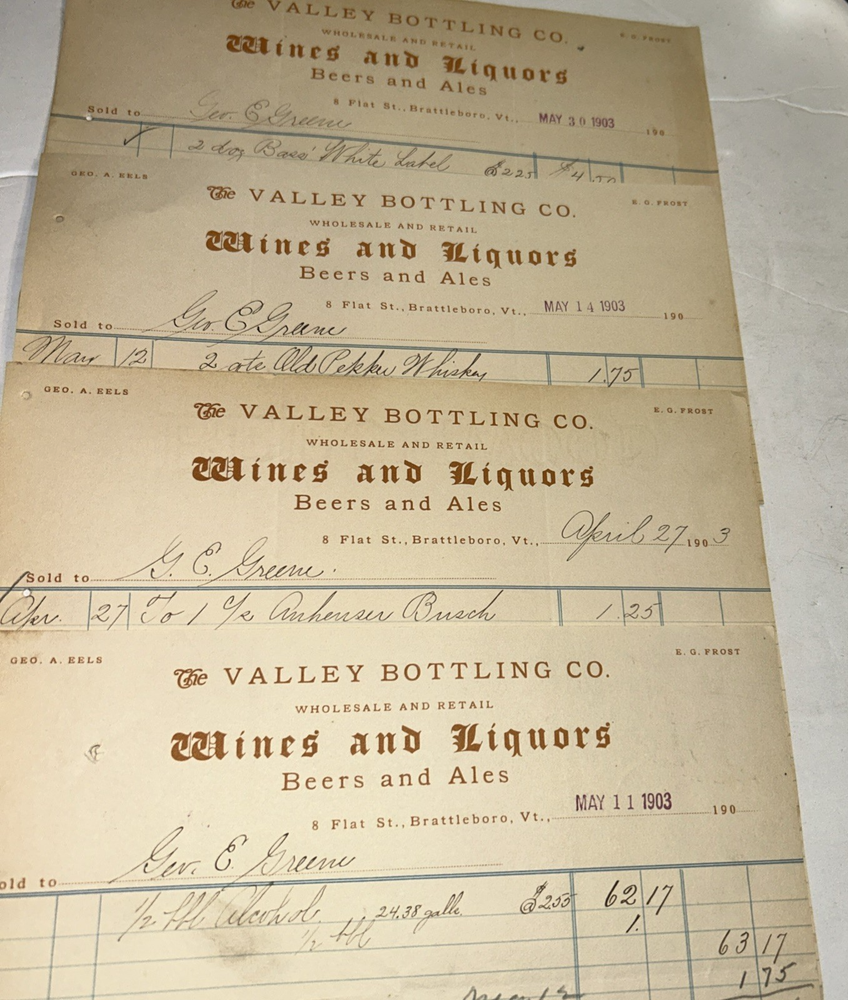 The VALLEY BOTTLING CO.
E. G. FROST
WHOLESALE AND RETAIL
Wines and Liquors
Beers and Ales
8 Flat St., Brattleboro, Vt., MAY 30 1903 190
Sold to Geo. E Greene
2 doz Bass' White Label @225 $4.50
GEO. A. EELS
E. G. FROST
The VALLEY BOTTLING CO.
WHOLESALE AND RETAIL
Wines and Liquors
Beers and Ales
8 Flat St., Brattleboro, Vt., MAY 14 1903 190
Sold to Geo. E Greene
May 12 2 qts Old Pepper Whiskey 1.75
GEO. A. EELS
E. G. FROST
The VALLEY BOTTLING CO.
WHOLESALE AND RETAIL
Wines and Liquors
Beers and Ales
8 Flat St., Brattleboro, Vt., April 27 1903
Sold to G. E. Greene.
Apr. 27 To 1 c/s Anheuser Busch 1.25
GEO. A. EELS
E. G. FROST
The VALLEY BOTTLING CO.
WHOLESALE AND RETAIL
Wines and Liquors
Beers and Ales
8 Flat St., Brattleboro, Vt., MAY 11 1903 190
old to Geo. E. Greene
1/2 bbl Alcohol 24.38 galls. @ 2.55 62 17
1/2 bbl 1.
63 17
1 75